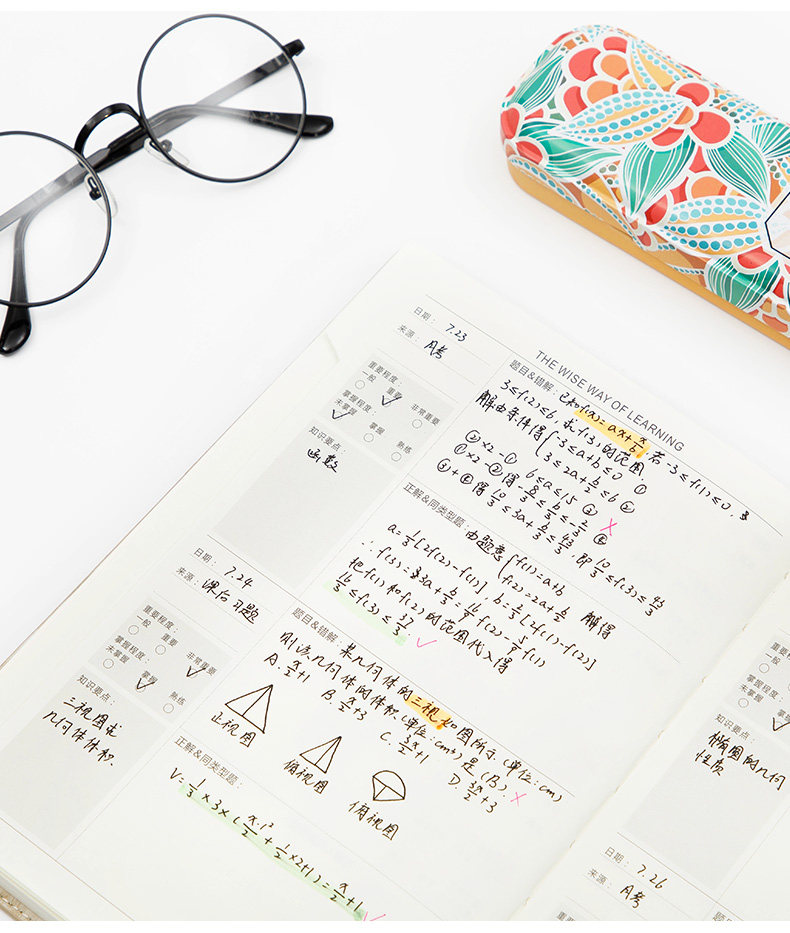 THE WISE WAY OF LEARNING
日期： 7.23
来源： 月考
重要程度：
一般 重要 非常重要
掌握程度：
未掌握 掌握 熟练
知识要点：
函数
题目&错解：已知f(x)=ax+x/b，若-3≤f(1)≤0，3
3≤f(2)≤6，求f(3)的范围.
解由条件得{-3≤a+b≤0 ①
3≤2a+b/2≤6 ②
②×2-① 6≤a≤15 ③
①×2-②得-8/3≤b/3≤-2/3 ④
③+④得10/3≤3a+b/3≤43/3 即10/3≤f(3)≤43/3
正解&同类型题：由题意{f(1)=a+b
f(2)=2a+b/2 解得
a=1/3[2f(2)-f(1)] b=2/3[2f(1)-f(2)]
∴f(3)=3a+b/3=16/9f(2)-5/9f(1)
把f(1)和f(2)的范围代入得
16/3≤f(3)≤37/3
日期： 7.24
来源： 课后习题
重要程度：
一般 重要 非常重要
掌握程度：
未掌握 掌握 熟练
知识要点：
三视图求
几何体体积
题目&错解：某几何体的三视如图所示(单位：cm)
则该几何体的体积(单位：cm³)是(B).
A.π/2+1 B.π/2+3 C.3π/2+1 D.3π/2+3
正视图 俯视图 俯视图
正解&同类型题：
V=1/3×3×(π·1²/2+1/2×2×1)=π/2+1
重要程度：
一般
掌握程度：
未掌握
知识要点：
椭圆的几何
性质
日期： 7.26
来源： 月考
重要程度：
题目